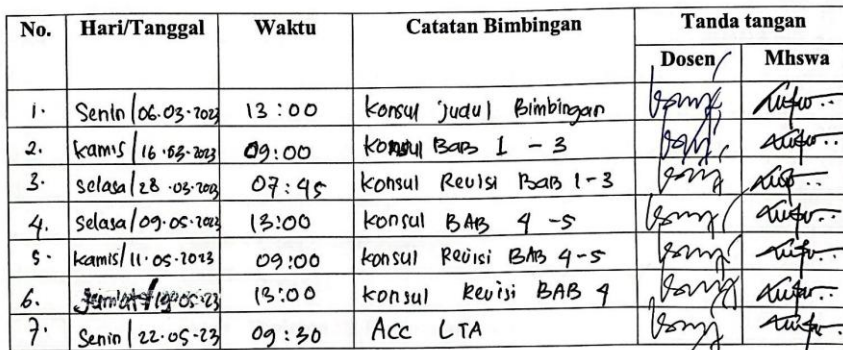 No. Hari/Tanggal Waktu Catatan Bimbingan Tanda tangan
Dosen Mhswa
1. Senin/06.03.2023 13:00 Konsul judul Bimbingan
2. Kamis/16.03.2023 09:00 Konsul Bab I - 3
3. Selasa/28.03.2023 07:45 Konsul Revisi Bab 1-3
4. Selasa/09.05.2023 13:00 Konsul BAB 4-5
5. Kamis/11.05.2023 09:00 Konsul Revisi BAB 4-5
6. Jumat/19.05.23 13:00 Konsul Revisi BAB 4
7. Senin/22.05-23 09:30 ACC LTA